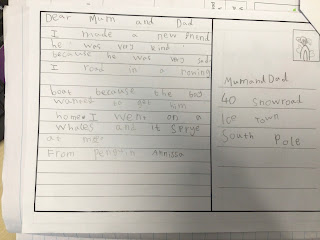 Dear Mum and Dad
I made a new friend
he was vay kind
because he was vay sad
I road in a rowing
boat because the boy
wanted to get him
home. I went on a
whales and it spraye
at me.
From Penguin Annissa
Mum and Dad
40 Snowroad
Ice Town
South Pole